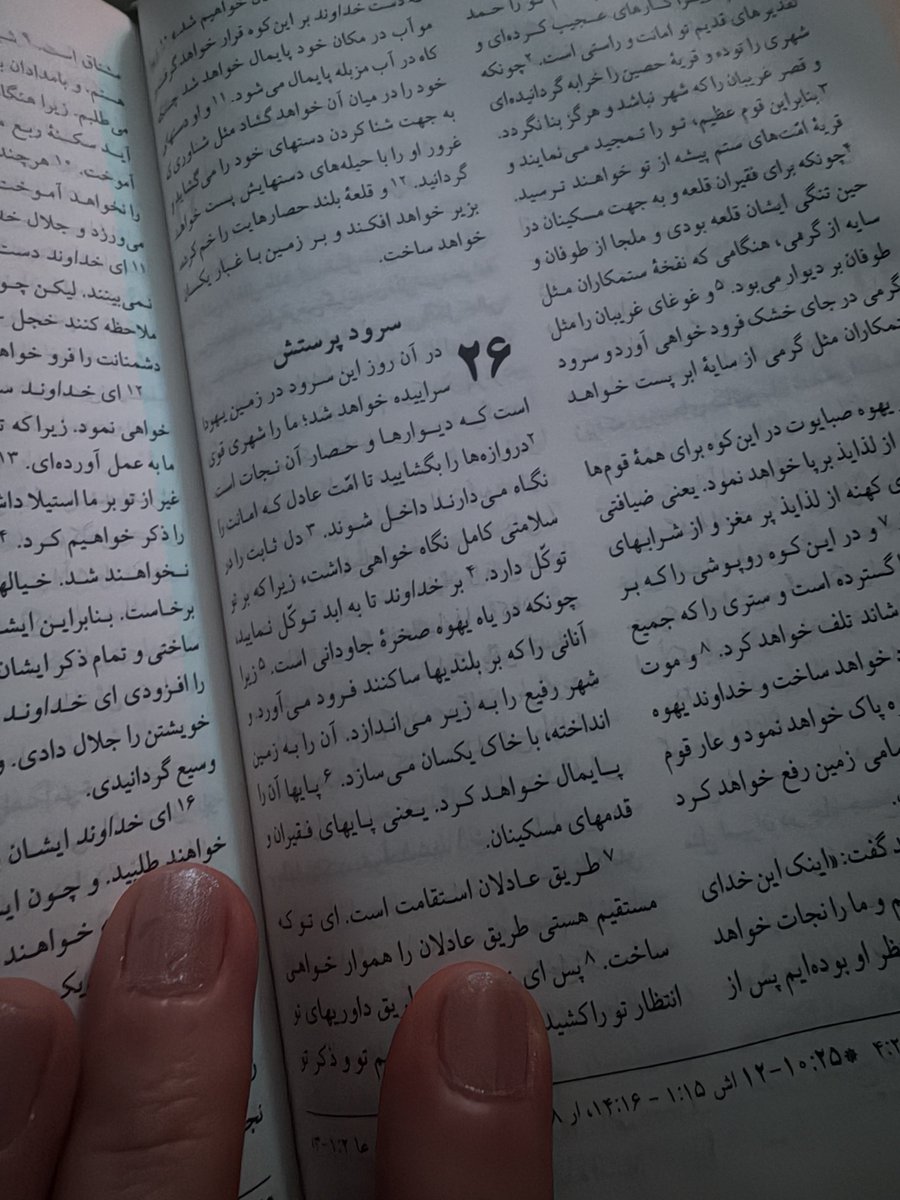 تو را حمد
کارهای عجیب کرده‌ای و
تقدیرهای قدیم تو امانت و راستی است. ۲چونکه
شهری را توده و قریهٔ حصین را خرابه گردانیده‌ای
و قصر غریبان را که شهر نباشد و هرگز بنا نگردد.
۳بنابراین قوم عظیم، تو را تمجید می‌نمایند و
قریهٔ امّت‌های ستم پیشه از تو خواهند ترسید.
۴چونکه برای فقیران قلعه و به جهت مسکینان در
حین تنگی ایشان قلعه بودی و ملجا از طوفان و
سایه از گرمی، هنگامی که نفخهٔ ستمکاران مثل
طوفان بر دیوار می‌بود. ۵و غوغای غریبان را مثل
گرمی در جای خشک فرود خواهی آورد و سرود
ستمکاران مثل گرمی از سایهٔ ابر پست خواهد
یهوه صبایوت در این کوه برای همهٔ قوم‌ها
از لذایذ برپا خواهد نمود. یعنی ضیافتی
کهنه از لذایذ پر مغز و از شرابهای
۷و در این کوه روپوشی را که بر
گسترده است و ستری را که جمیع
تلف خواهد کرد. ۸و موت
خواهد ساخت و خداوند یهوه
پاک خواهد نمود و عار قوم
زمین رفع خواهد کرد
گفت: «اینک این خدای
و ما را نجات خواهد
او بوده‌ایم پس از
خواهیم شد.
دست خداوند بر این کوه قرار خواهد گرفت
موآب در مکان خود پایمال خواهد شد
کاه در آب مزبله پایمال می‌شود. ۱۱و او
خود را در میان آن خواهد گشاد مثل شناوری
به جهت شنا کردن دستهای خود را می‌گشاید و
غرور او را با حیله‌های دستهایش پست خواهد
گردانید. ۱۲و قلعهٔ بلند حصارهایت را خم کرده،
بزیر خواهد افکند و بر زمین با غبار یکسان
خواهد ساخت.
سرود پرستش
۲۶ در آن روز این سرود در زمین یهودا
سراییده خواهد شد؛ ما را شهری قوی
است که دیوارها و حصار آن نجات است
۲دروازه‌ها را بگشایید تا امّت عادل که امانت را
نگاه می‌دارند داخل شوند. ۳دل ثابت را در
سلامتی کامل نگاه خواهی داشت، زیرا که بر تو
توکّل دارد. ۴بر خداوند تا به ابد توکّل نمایید،
چونکه در یاه یهوه صخرهٔ جاودانی است. ۵زیرا
آنانی را که بر بلندیها ساکنند فرود می‌آورد و
شهر رفیع را به زیر می‌اندازد. آن را به زمین
انداخته، با خاک یکسان می‌سازد. ۶پایها آن را
پایمال خواهد کرد. یعنی پایهای فقیران و
قدمهای مسکینان.
۷طریق عادلان استقامت است. ای تو که
مستقیم هستی طریق عادلان را هموار خواهی
ساخت. ۸پس ای طریق داوریهای تو
انتظار تو را کشید تو و ذکر تو
*۱۰:۲۵-۱۲ اش ۱:۱۵ - ۱۴:۱۶، ار
مشتاق است.
و بامدادان
می‌طلبم. زیرا هنگا
آید سکنهٔ ربع
آموخت. ۱۰هرچند
را نخواهد آموخت
می‌ورزد و جلال
۱۱ای خداوند دست
نمی‌بینند. لیکن چو
ملاحظه کنند خجل
دشمنانت را فرو خواهد
۱۲ای خداوند
خواهی نمود. زیرا که
ما به عمل آورده‌ای. ۱۳
غیر از تو بر ما استیلا
را ذکر خواهیم کرد.
نخواهند شد. خیالها
برخاست. بنابراین
ساختی و تمام ذکر ایشان
را افزودی ای خداوند
خویشتن را جلال دادی. و
وسیع گردانیدی.
۱۶ای خداوند ایشان
خواهند طلبید. و چون
خواهند